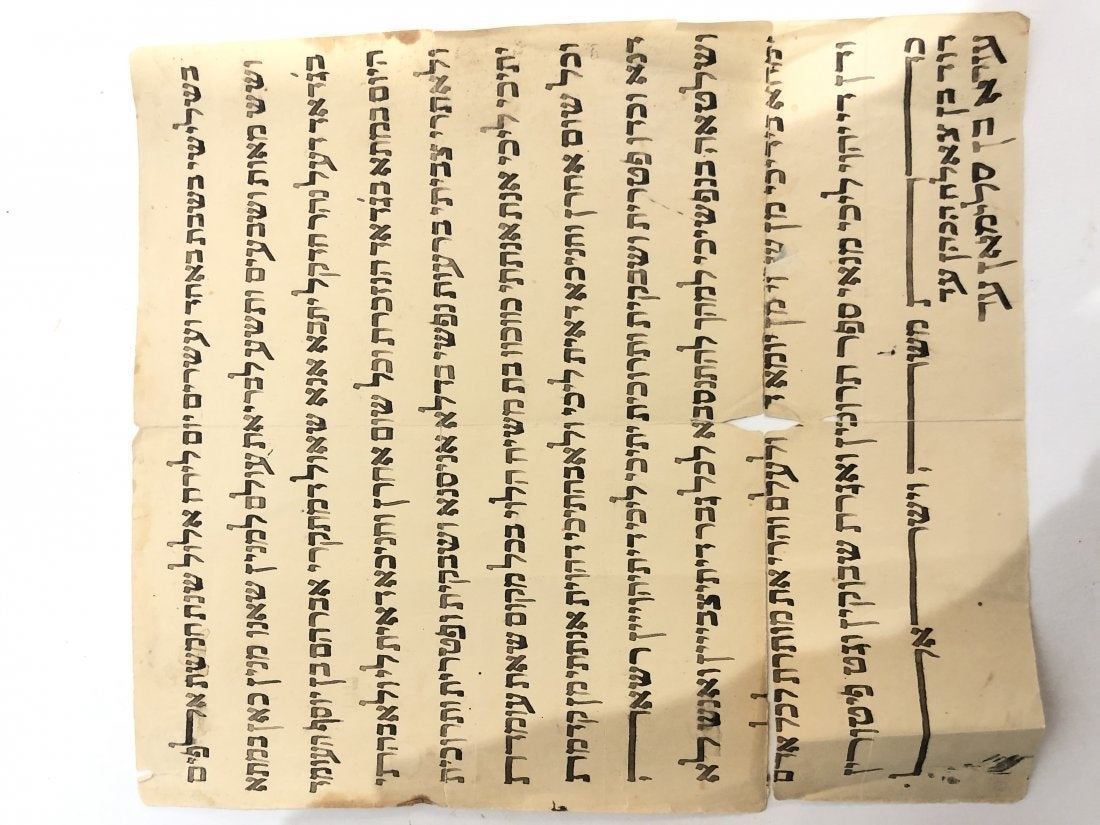 בשלישי בשבת באחד ועשרים יום לירח אלול שנת חמשת אלפים
ושש מאות ושבעים ותשע לבריאת עולם למנין שאנו מנין כאן במתא
בגדאד דעל נהר חידקל יתבא אנא שאול דמתקרי אברהם בן יוסף העומד
היום במתא בגדאד הנזכרת וכל שום אחרן וחניכא דאית לי ולאבהתי
ולאתרי צביתי ברעות נפשי בדלא אניסנא ושבקית ופטרית ותרוכית
יתיכי ליכי אנת אנתתי כווכוו בת משיח הלוי בכל מקום שאת עומדת
וכל שום אחרן וחניכא דאית ליכי ולאבהתיכי דהוית אנתתי מן קדמת
דנא וכדו פטרית ושבקית ותרוכית יתיכי ליכי דיתיהוייין רשאה
ושלטאה בנפשיכי למהך להתנסבא לכל גבר דיתיצבייין ואנש לא
ימחא בידיכי מן יומא ולעלם והרי את מותרת לכל אדם
ודן די יהוי ליכי מנאי ספר תרוכין ואגרת שבוקין וגט פיטורין
כדת משה וישראל
דוד בן צאלח הכהן עד
עזרא בן סלימאן עד